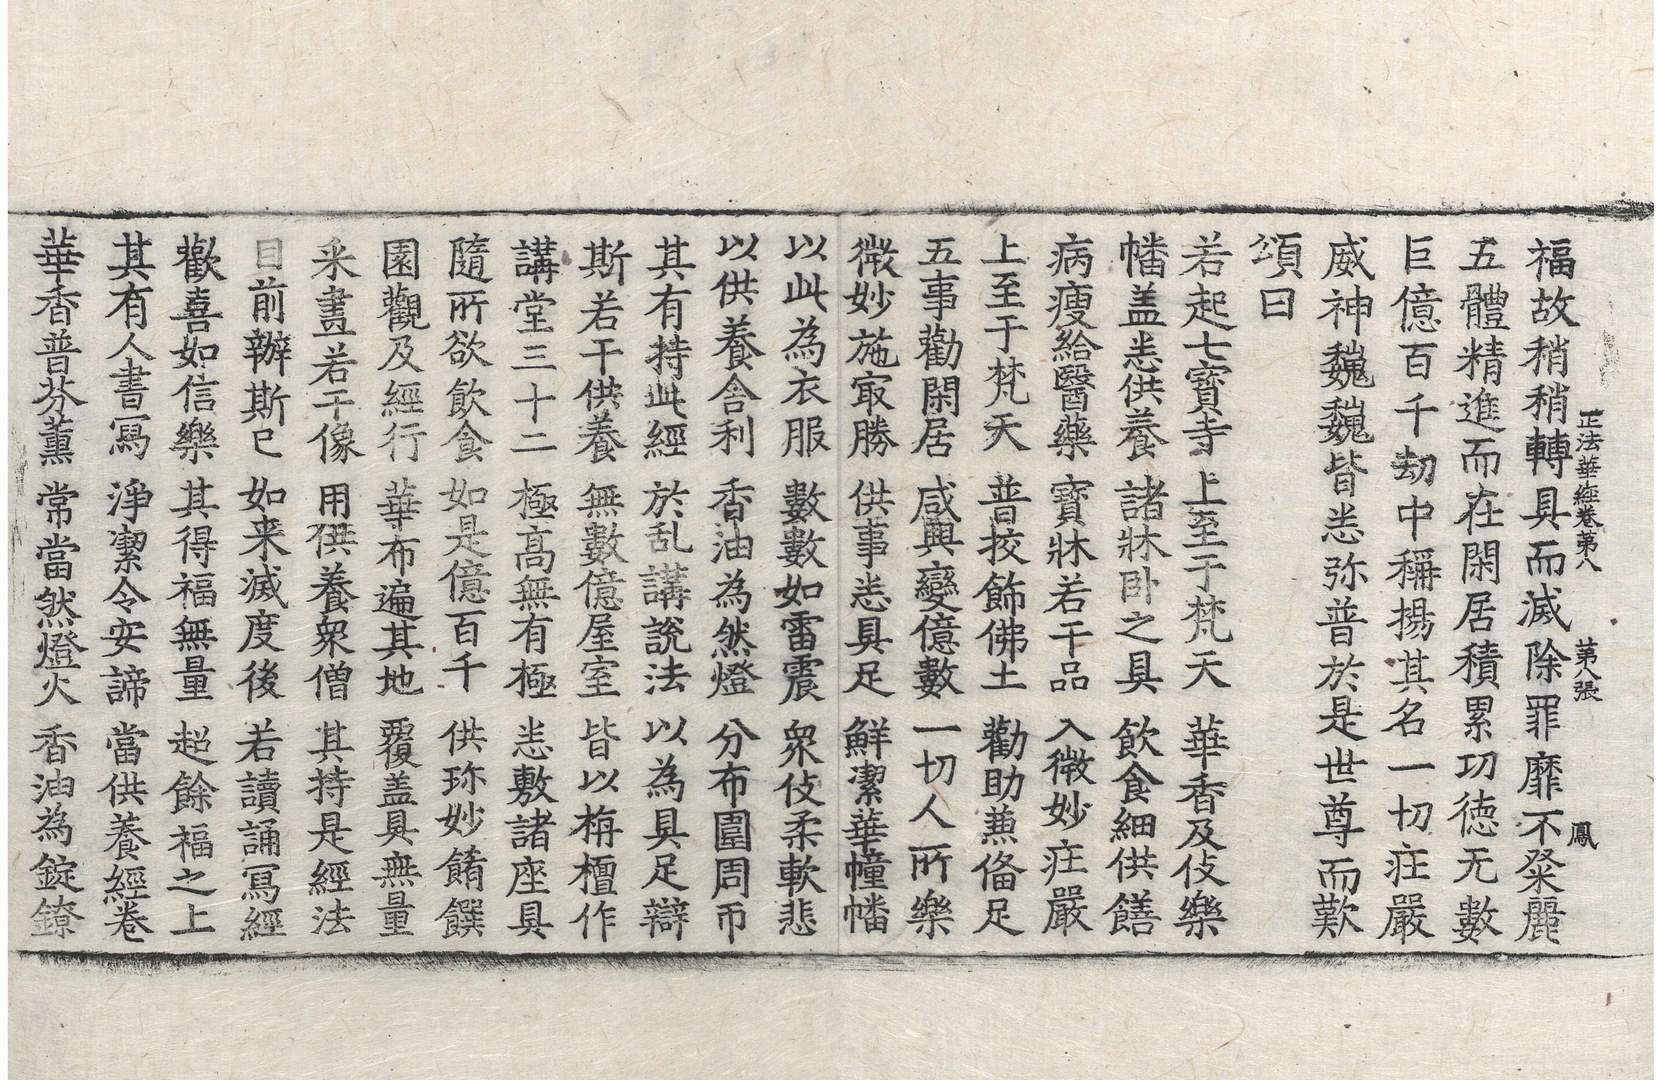 正法華經卷第八　第八張　鳳
福故稍稍轉具而滅除罪靡不粲麗
五體精進而在閑居積累功德无數
巨億百千劫中稱揚其名一切庄嚴
威神巍巍皆悉弥普於是世尊而歎
頌曰
若起七寶寺　上至于梵天　華香及伎樂
幡盖悉供養　諸牀卧之具　飲食細供饍
病瘦給醫藥　寶牀若干品　入微妙庄嚴
上至于梵天　普挍飾佛土　勸助兼俻足
五事勸閑居　咸興變億數　一切人所樂
微妙施㝡勝　供事悉具足　鮮潔華幢幡
以此為衣服　數數如雷震　衆伎柔軟悲
以供養舎利　香油為然燈　分布圍周帀
其有持此經　於乱講說法　以為具足辯
斯若干供養　無數億屋室　皆以栴檀作
講堂三十二　極髙無有極　悉敷諸座具
隨所欲飲食　如是億百千　供珎妙餚饌
園觀及經行　華布遍其地　覆盖具無量
釆畫若干像　用供養衆僧　其持是經法
目前辦斯已　如来滅度後　若讀誦冩經
歡喜如信樂　其得福無量　超餘福之上
其有人書冩　淨潔令安諦　當供養經卷
華香普芬薰　常當然燈火　香油為錠鐐